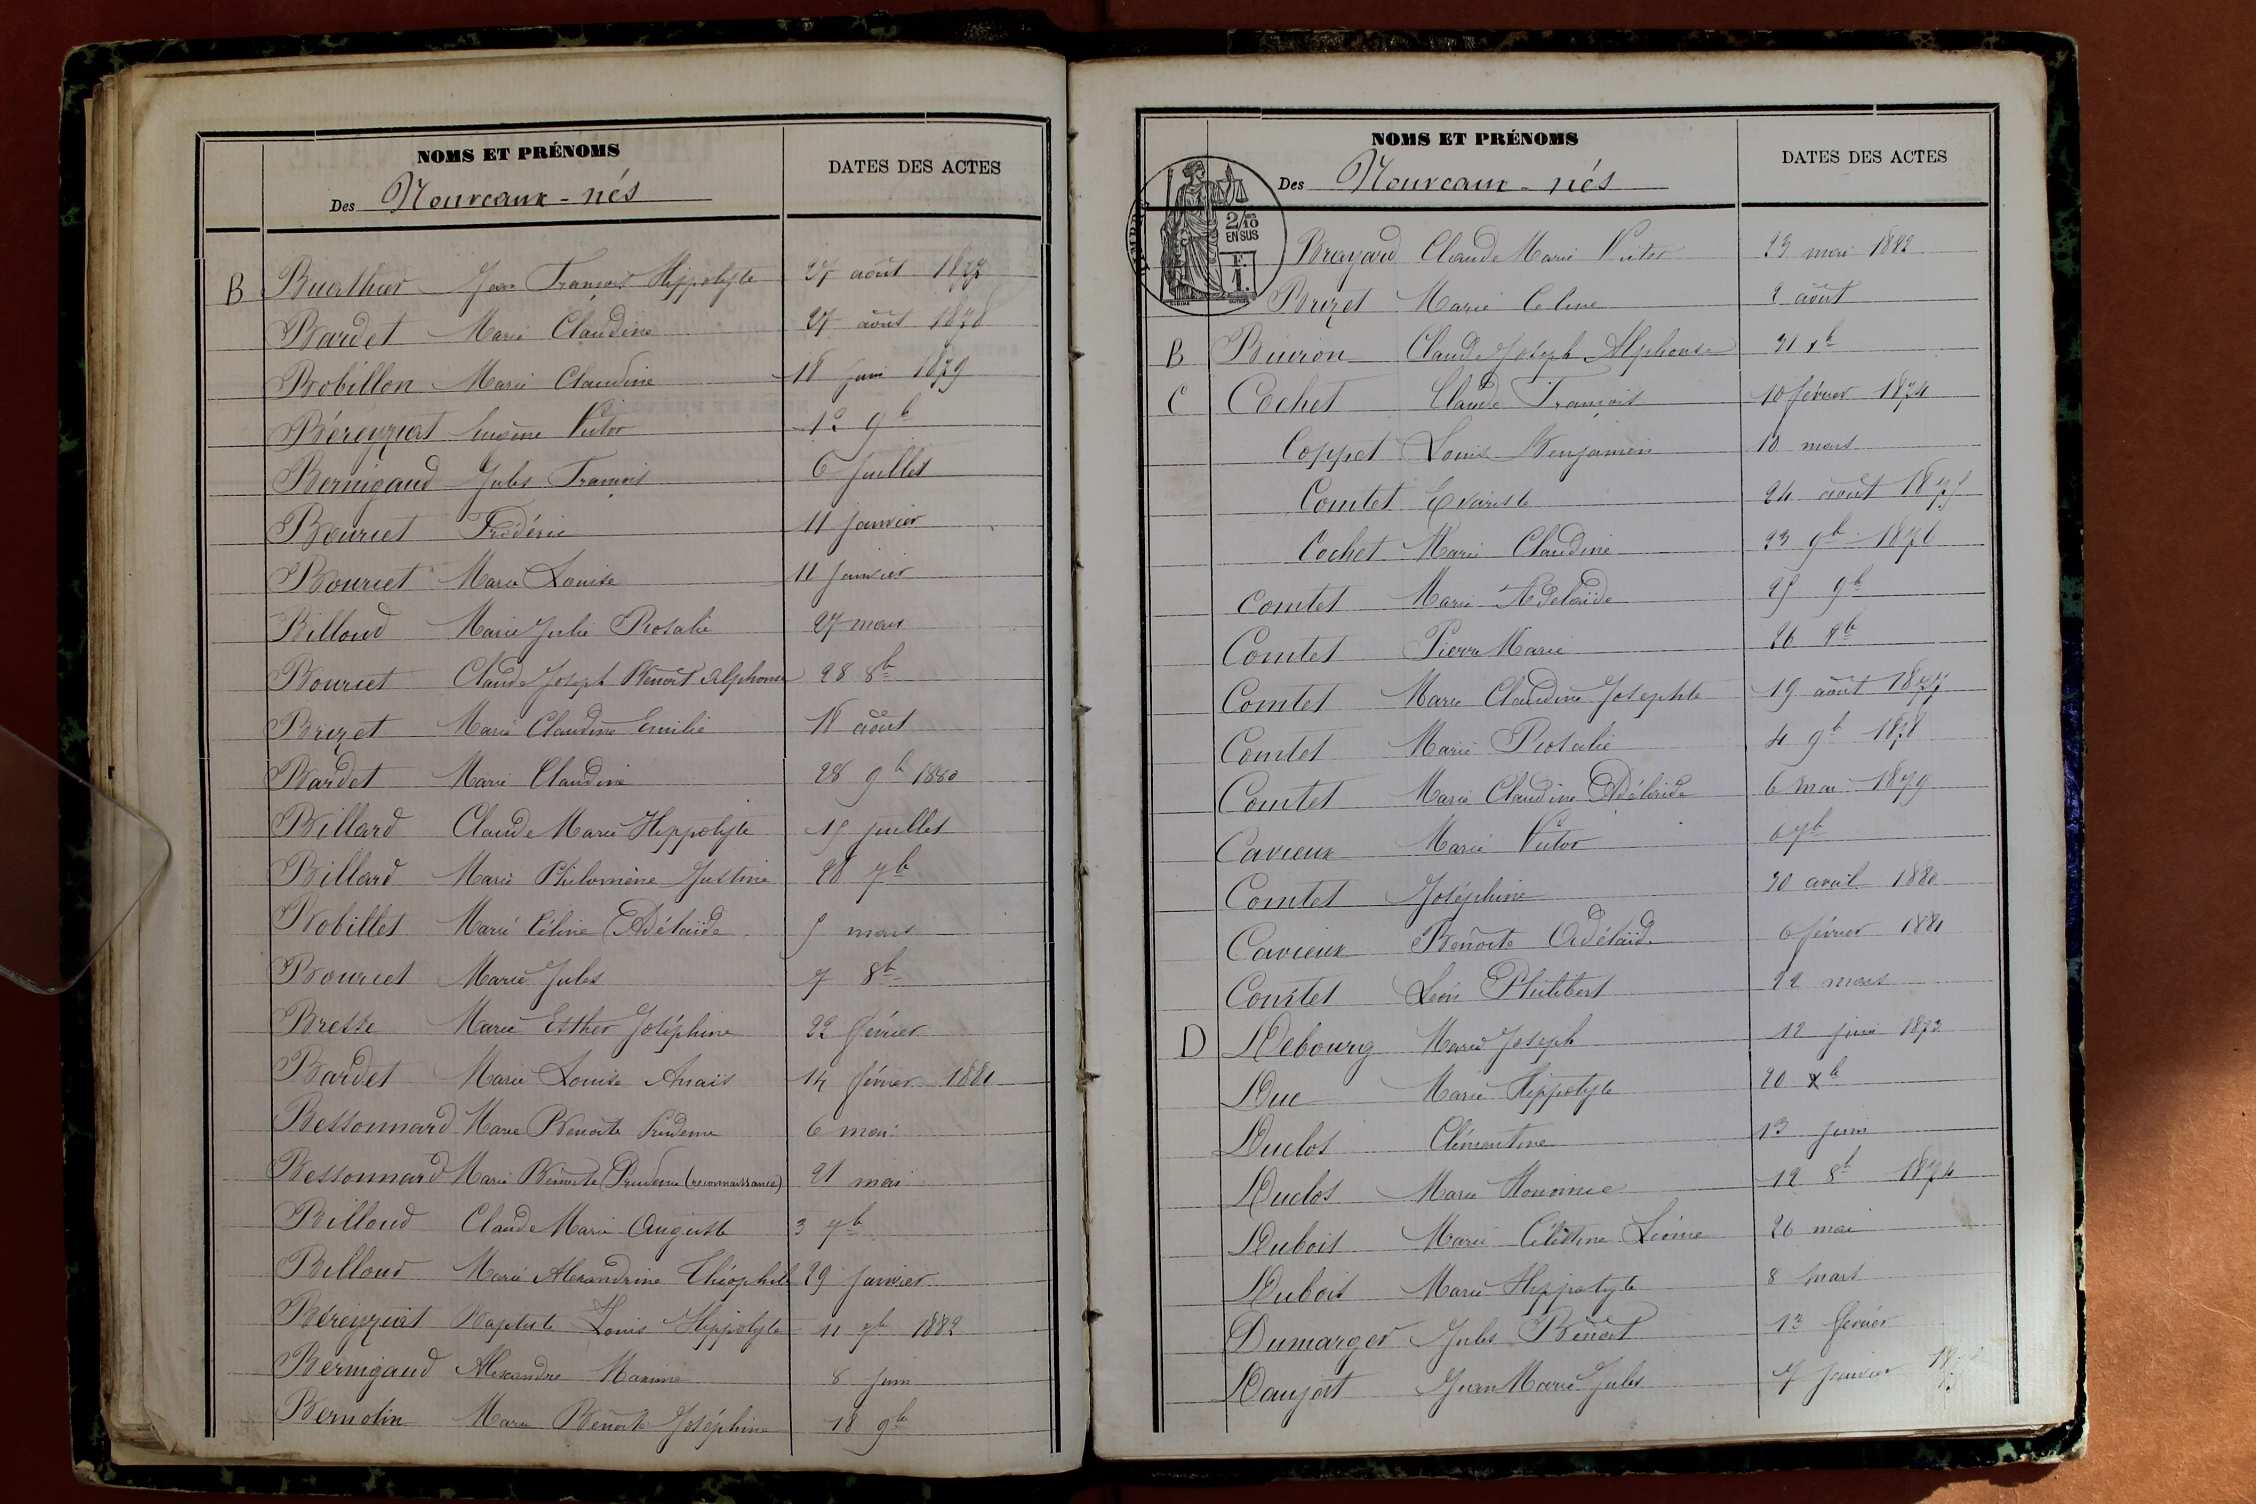 NOMS ET PRÉNOMS
DATES DES ACTES
Des Nouveaux-nés
B Buathier Jean François Hippolyte 27 août 1877
Bardet Marie Claudine 27 août 1878
Bobillon Marie Claudine 18 juin 1879
Béréyziat Eugène Victor 12 9b
Bernigaud Jules François 6 juillet
Bourcet Frédéric 11 janvier
Bourcet Marie Louise 11 janvier
Billoud Marie Julie Rosalie 27 mars
Bourcet Claude Joseph Benoit Alphonse 28 8b
Brizet Marie Claudine Emilie 18 août
Bardet Marie Claudine 28 9b 1880
Billard Claude Marie Hippolyte 15 juillet
Billard Marie Philomène Justine 28 7b
Bobillet Marie Céline Adélaïde 5 mars
Bourcet Marie Jules 7 8b
Bresse Marie Esther Joséphine 22 février
Bardet Marie Louise Anaïs 14 février 1881
Bessonnard Marie Benoite Prudence 6 mai
Bessonnard Marie Benoite Prudence (reconnaissance) 21 mai
Billoud Claude Marie Auguste 3 7b
Billoud Marie Alexandrine Théophile 29 janvier
Béréyziat Baptiste Louis Hippolyte 11 7b 1882
Bernigaud Alexandre Maxime 8 juin
Bernolin Marie Benoite Joséphine 18 9b
NOMS ET PRÉNOMS
DATES DES ACTES
Des Nouveaux-nés
2/10 EN SUS
F. 1.
Brayard Claude Marie Victor 23 mai 1882
Brizet Marie Celine 2 août
B Buiron Claude Joseph Alphonse 21 xb
C Cochet Claude François 10 février 1874
Coppet Louis Benjamin 10 mars
Comtet Evariste 24 août 1875
Cochet Marie Claudine 23 9b 1876
Comtet Marie Adelaïde 25 9b
Comtet Pierre Marie 26 8b
Comtet Marie Claudine Josephte 19 août 1877
Comtet Marie Rosalie 4 9b 1878
Comtet Marie Claudine Adélaïde 6 mai 1879
Cavieux Marie Victor 6 7b
Comtet Joséphine 20 avril 1880
Cavieux Benoite Adélaïde 6 février 1881
Comtet Léon Philibert 22 mars
D Debourg Marie Joseph 12 juin 1872
Duc Marie Hippolyte 20 xb
Duclos Clémentine 13 juin
Duclos Marie 12 8b 1874
Dubois Marie Célestine Léonie 26 mai
Dubois Marie Hippolyte 8 mars
Dumarger Jules Benoit 12 février
Daujat Jean Marie Jules 7 janvier